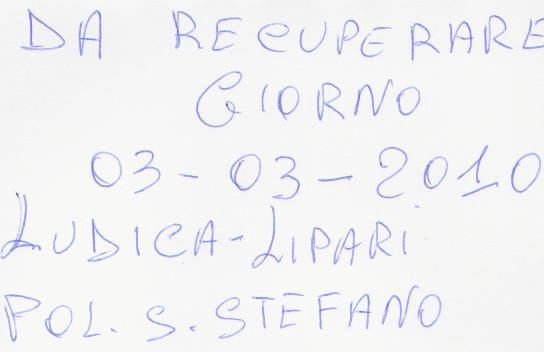 DA RECUPERARE
GIORNO
03-03-2010
LUDICA-LIPARI
POL. S. STEFANO